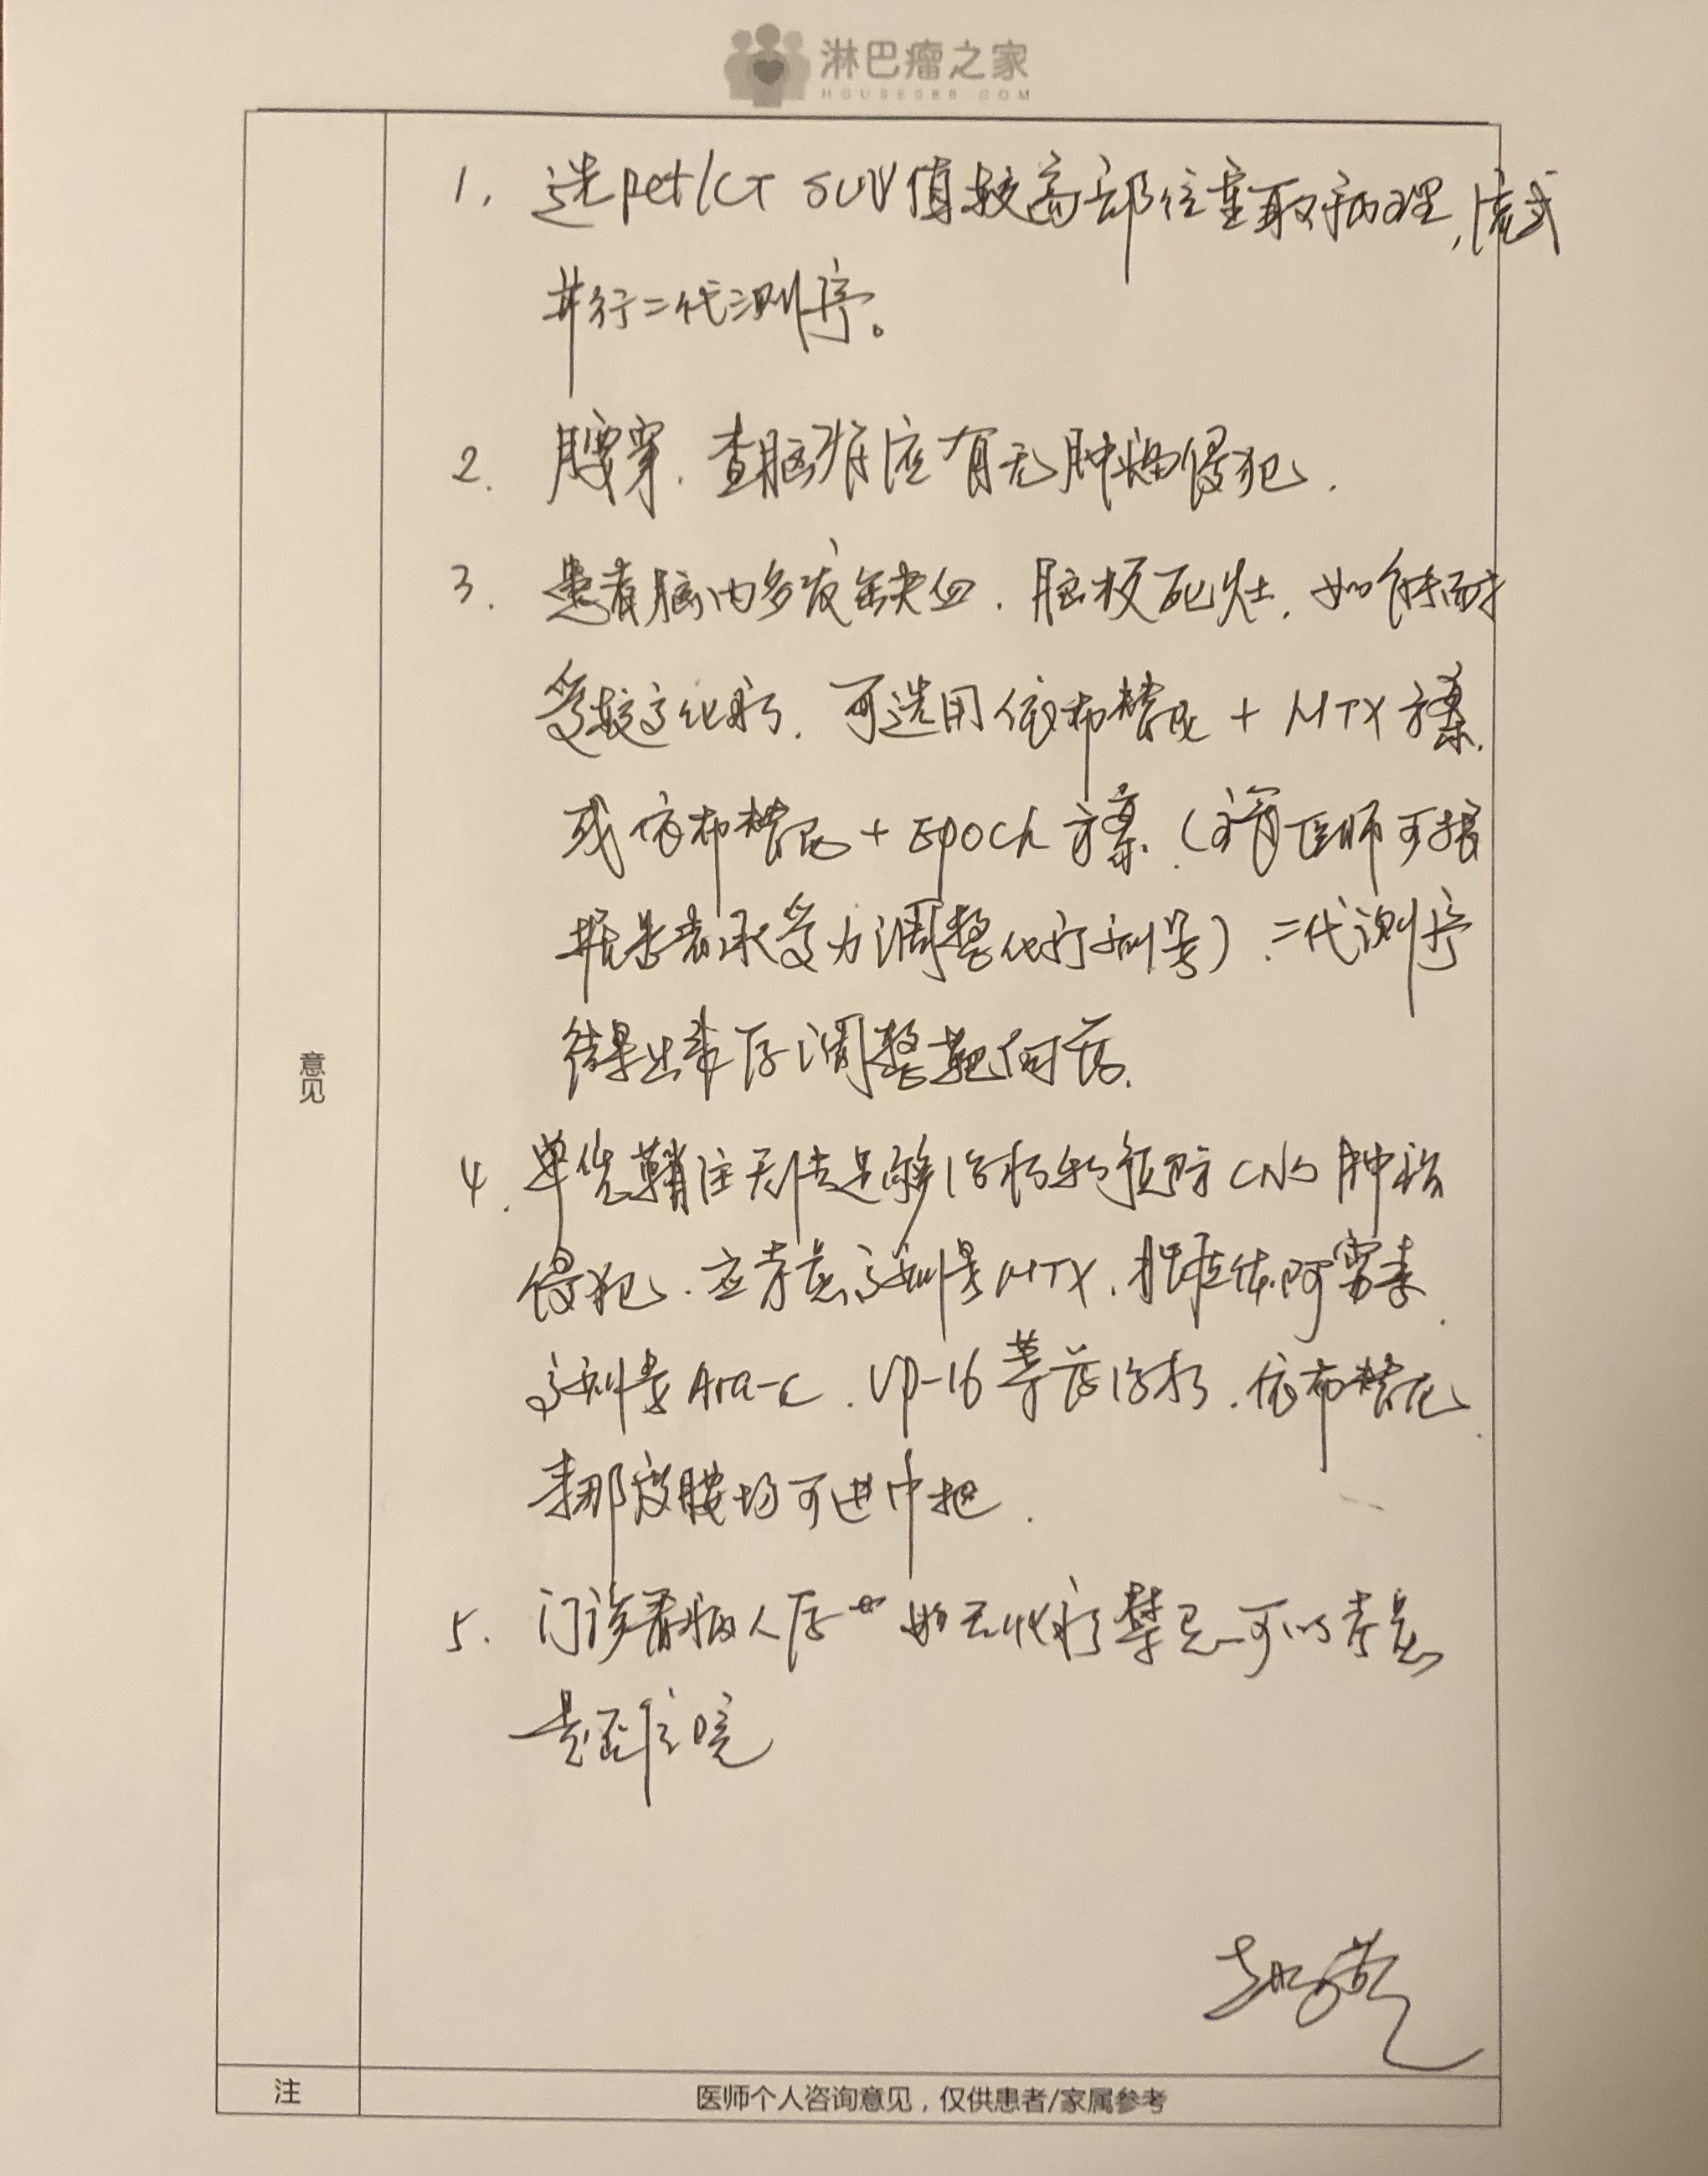 淋巴瘤之家
HOUSE086.COM
1. 选pet/CT SUV值较高部位重取病理,流式
并行二代测序。
2. 腰穿.查脑脊液有无肿瘤侵犯.
3. 患者脑内多发缺血.脑梗死灶.如能耐
受较高化疗.可选用依布替尼+MTX方案.
或依布替尼+EPOCH方案.(主管医师可根
据患者承受力调整化疗剂量).二代测序
结果出来后调整靶向药.
4. 单凭鞘注无法足够治疗和预防CNS肿瘤
侵犯.应考虑高剂量MTX.脂质体阿霉素.
高剂量Ara-c.VP-16等药治疗.依布替尼.
来那度胺均可进中枢.
5. 门诊看病人后 如无化疗禁忌可以考虑
是否住院
意见
注
医师个人咨询意见,仅供患者/家属参考